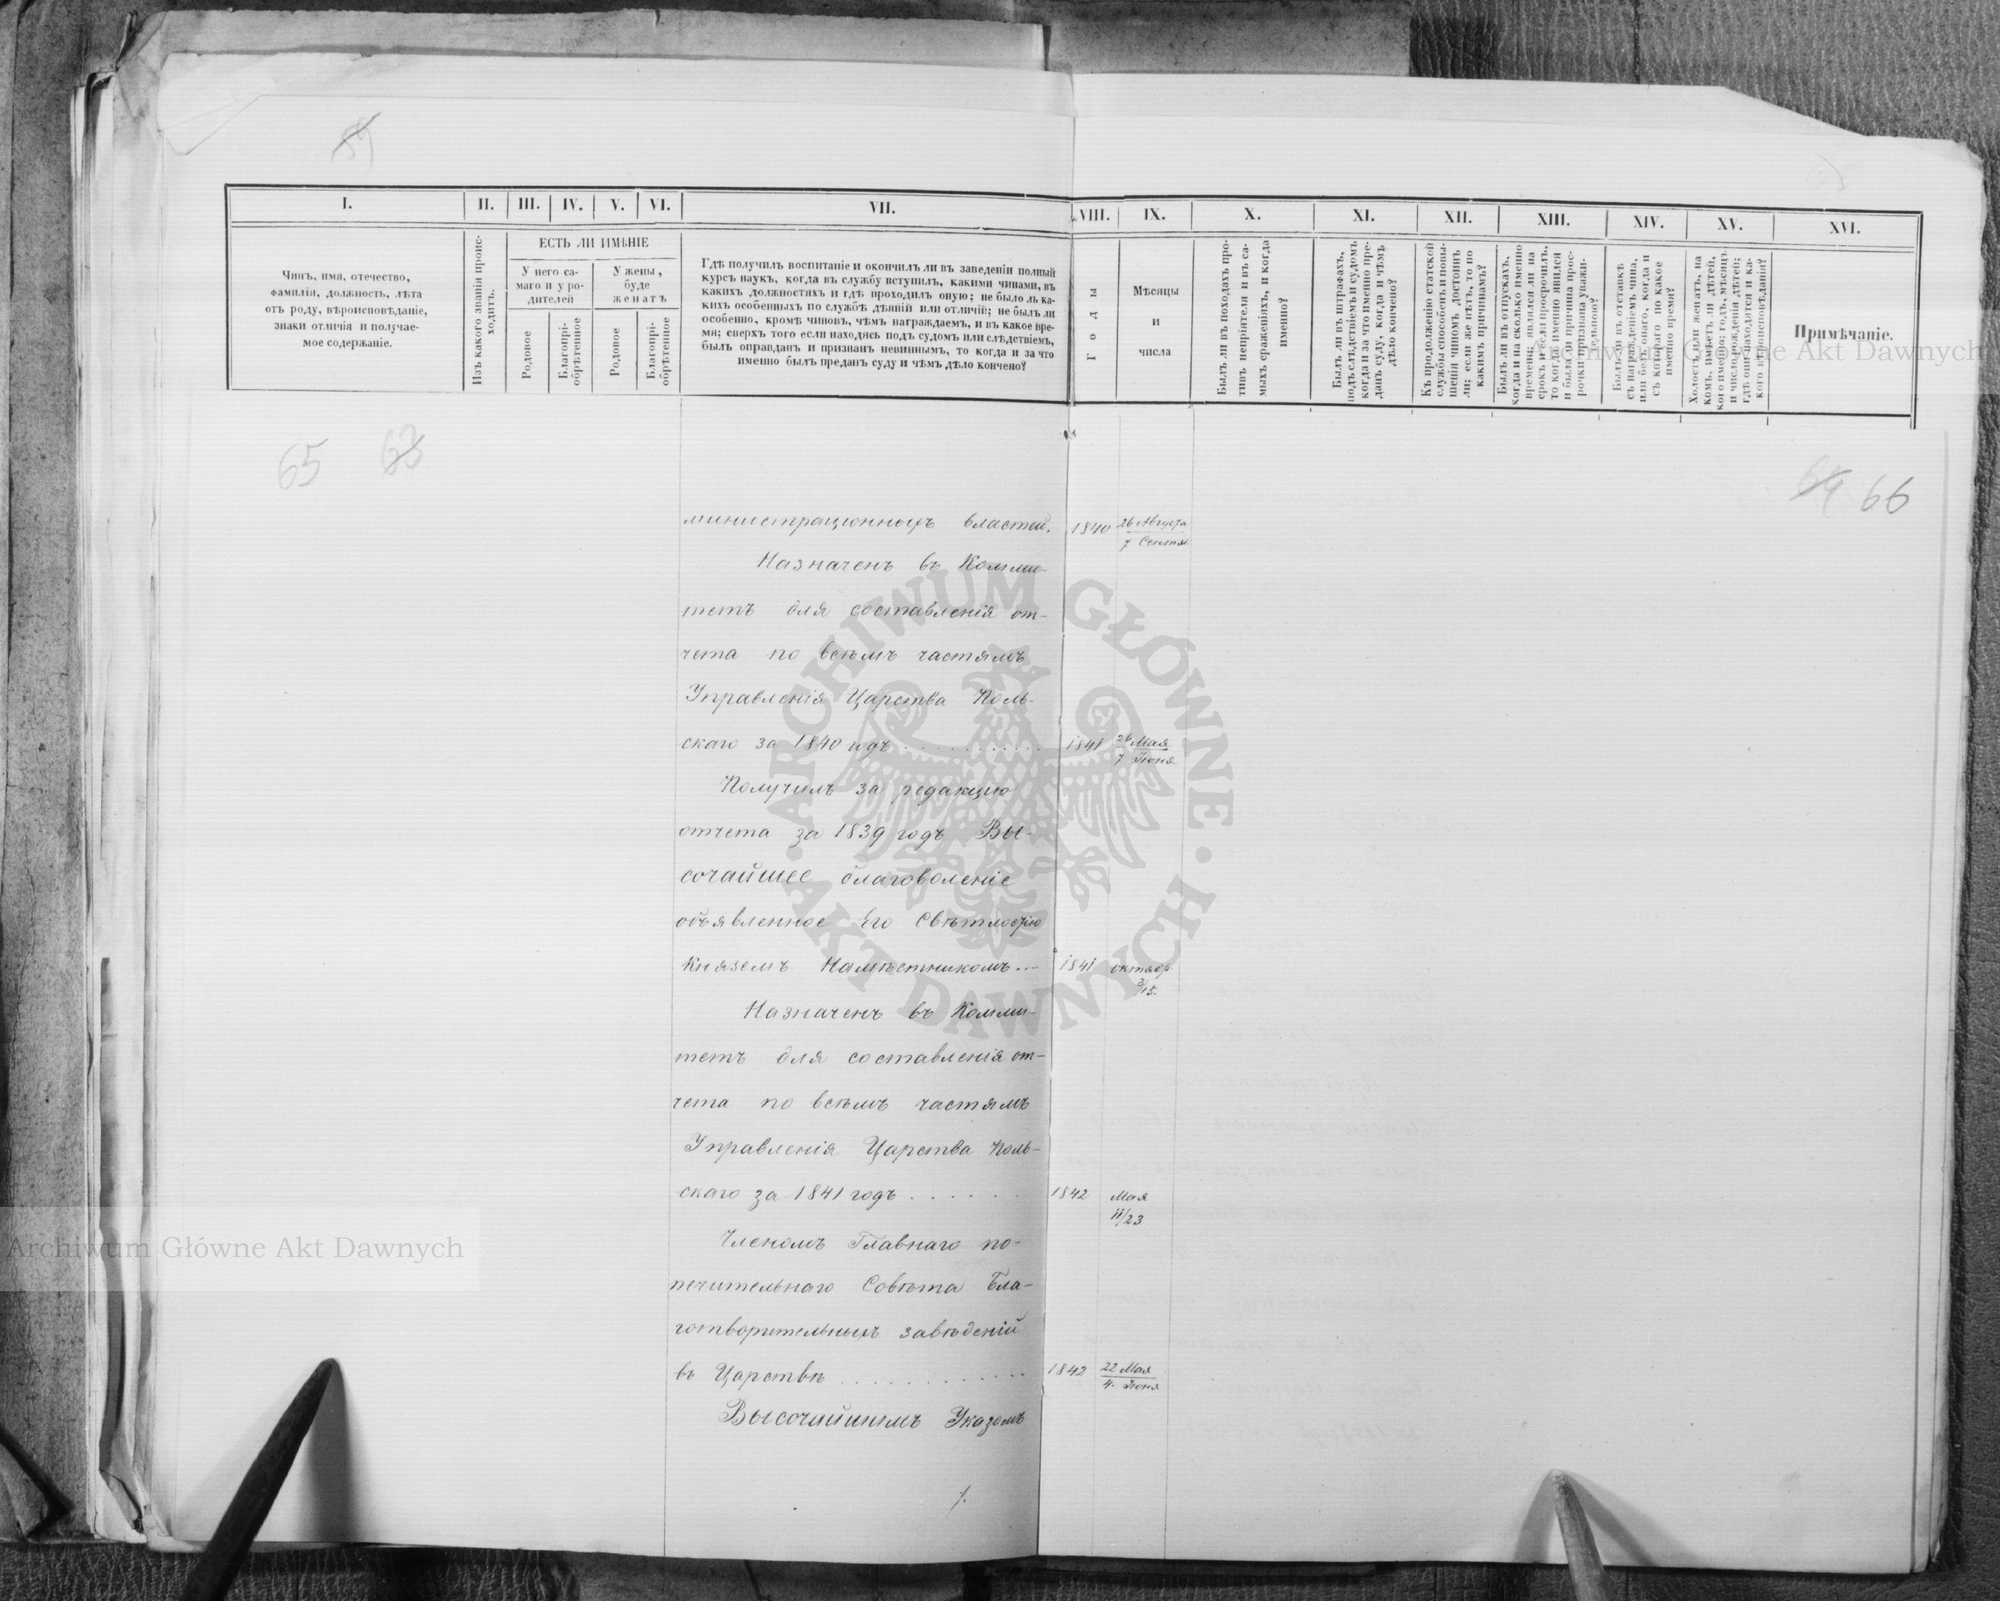 I.
II.
III.
IV.
V.
VI.
VII.
VIII.
IX.
X.
XI.
XII.
XIII.
XIV.
XV.
XVI.
Чинъ, имя, отечество,
фамилія, должность, лѣта
отъ роду, вѣроисповѣданіе,
знаки отличія и получае-
мое содержаніе.
Изъ какого званія проис-
ходитъ.
ЕСТЬ ЛИ ИМѢНІЕ
У него са-
маго и у ро-
дителей
У жены,
буде
женатъ
Родовое
Благопрі-
обрѣтенное
Родовое
Благопрі-
обрѣтенное
Гдѣ получилъ воспитаніе и окончилъ ли въ заведеніи полный
курсъ наукъ, когда въ службу вступилъ, какими чинами, въ
какихъ должностяхъ и гдѣ проходилъ оную; не было ль ка-
кихъ особенныхъ по службѣ дѣяній или отличій; не былъ ли
особенно, кромѣ чиновъ, чѣмъ награждаемъ, и въ какое вре-
мя; сверхъ того если находясь подъ судомъ или слѣдствіемъ,
былъ оправданъ и признанъ невиннымъ, то когда и за что
именно былъ преданъ суду и чѣмъ дѣло кончено?
Годы
Мѣсяцы
и
числа
Былъ ли въ походахъ про-
тивъ непріятеля и въ са-
мыхъ сраженіяхъ, и когда
именно?
Былъ ли въ штрафахъ,
подъ слѣдствіемъ и судомъ
когда и за что именно пре-
данъ суду, когда и чѣмъ
дѣло кончено?
Къ продолженію статской
службы способенъ и повы-
шенія чиномъ достоинъ
ли; если же нѣтъ, то по
какимъ причинамъ?
Былъ ли въ отпускахъ,
когда и на сколько именно
времени; являлся ли на
срокъ и если просрочилъ,
то когда именно явился
и была ли причина прос-
рочки признана уважи-
тельною?
Былъ ли въ отставкѣ
съ награжденіемъ чина,
или безъ онаго, когда и
съ котораго по какое
именно время?
Холостъ или женатъ, на
комъ, имѣетъ ли дѣтей,
кого именно; годъ, мѣсяцъ
и число рожденія дѣтей;
гдѣ они находятся и ка-
кого вѣроисповѣданія?
Примѣчаніе.
65 63
64 66
министраціонныхъ властей. 1840 26 Августа
7 Сентяб.
Назначенъ въ Комми-
тетъ для составленія от-
чета по всѣмъ частямъ
Управленія Царства Поль-
скаго за 1840 годъ . . . . . . . . . . . 1841 26 Мая
7 Іюня
Получилъ за редакцію
отчета за 1839 годъ Вы-
сочайшее благоволеніе
объявленное Его Свѣтлостію
Княземъ Намѣстникомъ... 1841 октябр.
3/15.
Назначенъ въ Комми-
тетъ для составленія от-
чета по всѣмъ частямъ
Управленія Царства Поль-
скаго за 1841 годъ . . . . . . 1842 Мая
11/23
Членомъ Главнаго по-
печительнаго Совѣта Бла-
готворительныхъ заведеній
въ Царствѣ . . . . . . . . . . . . 1842 22 Мая
4. Іюня
Высочайшимъ Указомъ
ARCHIWUM GŁÓWNE · AKT DAWNYCH ·
Archiwum Główne Akt Dawnych
Archiwum Główne Akt Dawnych